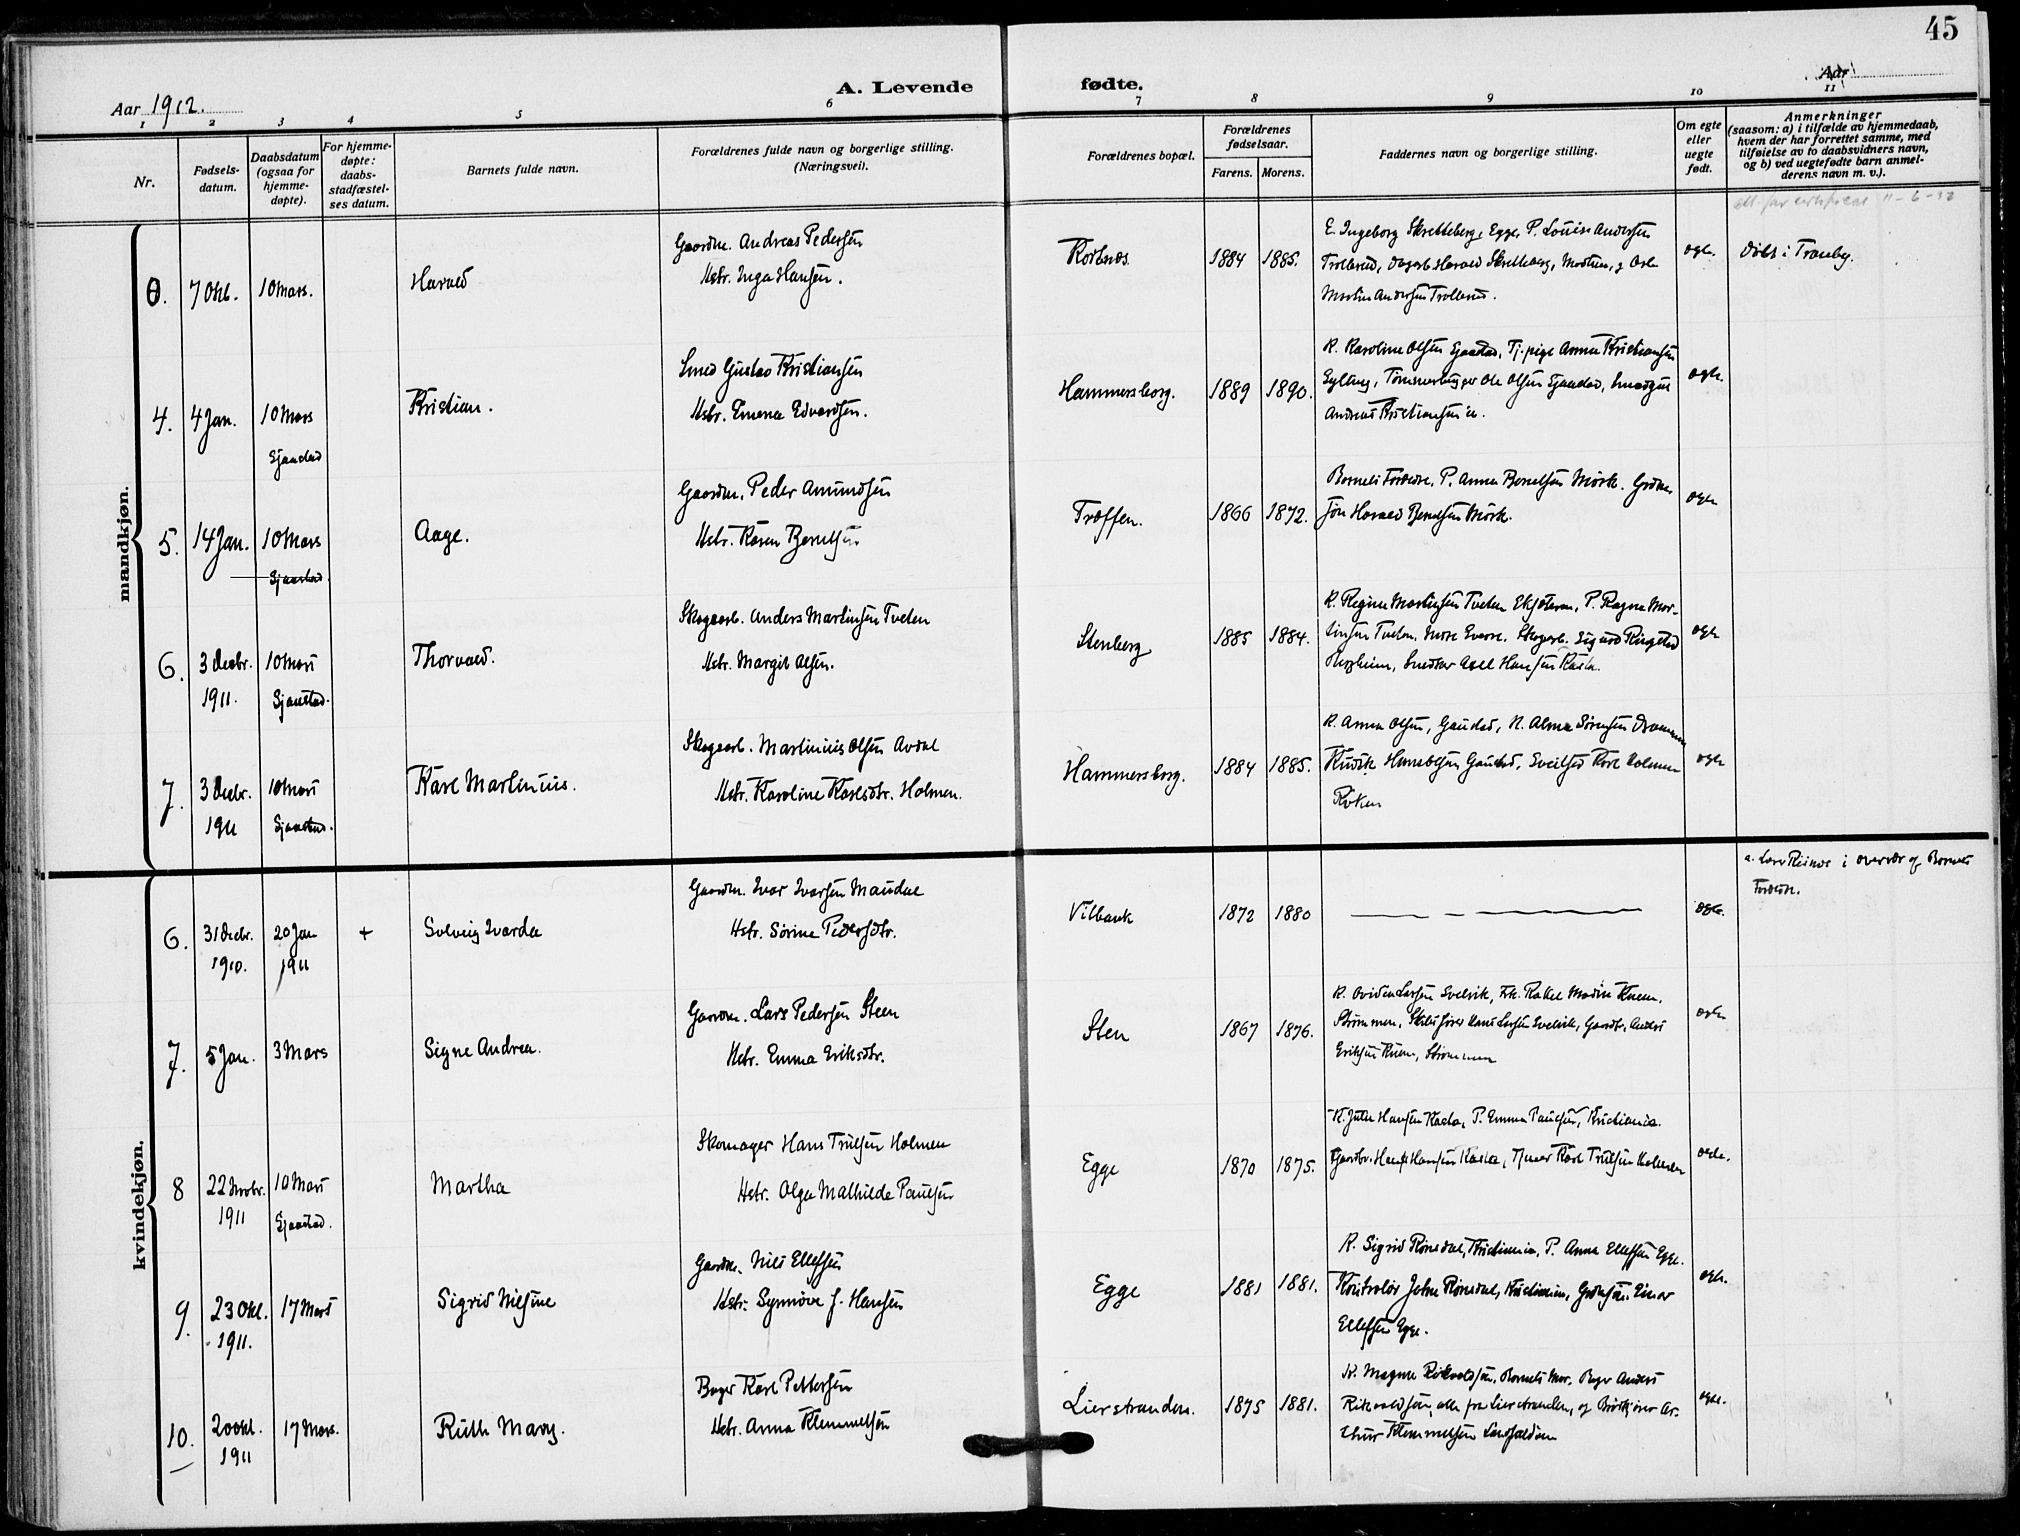 45
A. Levende fødte.
Aar 1912.
Aar
1 2 3 4 5 6 7 8 9 10 11
Nr.
Fødsels-
datum.
Daabsdatum
(ogsaa for
hjemme-
døpte).
For hjemme-
døpte:
daabs-
stadfæstel-
ses datum.
Barnets fulde navn.
Forældrenes fulde navn og borgerlige stilling.
(Næringsvei).
Forældrenes bopæl.
Forældrenes
fødselsaar.
Farens. Morens.
Faddernes navn og borgerlige stilling.
Om egte
eller
uegte
født.
Anmerkninger
(saasom: a) i tilfælde av hjemmedaab,
hvem der har forrettet samme, med
tilføielse av to daabsvidners navn,
og b) ved uegtefødte barn anmel-
derens navn m. v.).
11-6-
mandkjøn.
0. 7 Okt. 10 Mars. Harald
Gaardm. Andreas Pedersen
Hstr. Inga Hansen.
1884 1885.
E. Ingeborg Skretteberg, Egge, P. Louise Andersen
Martin Andersen Trollerud.
egte.
Døbt i Tranby.
4. 4 Jan. 10 Mars
Sjaastad
Kristian.
Smed Gustav Kristiansen
Hstr. Emma Edvardsen.
Hammersborg. 1889 1890.
K. Karoline Olsen Sjaastad, Tj.pige Anna Kristiansen
Ole Olsen Sjaastad,
Andreas Kristiansen
egte.
5. 14 Jan. 10 Mars
Sjaastad.
Aage.
Gaardm. Peder Amundsen
Hstr. Karen Berntsen
Træffen. 1866 1872.
Barnets Forældre, P. Anna Berntsen Mørk.
Harald Berntsen Mørk.
egte
6. 3 Decbr. 10 Mars
1911. Sjaastad.
Thorvald.
Skogarb. Anders Martinsen Tveten
Hstr. Margit Olsen.
Stenberg 1885 1884.
K. Regine Martinsen Tveten P. Ragna Mar-
tinsen Tveten, Skogarb. Sigurd Ringstad
Axel Hansen Kaste.
egte
7. 3 Decbr. 10 Mars
1911 Sjaastad.
Karl Martinius.
Skogarb. Martinius Olsen Avdal
Hstr. Karoline Karlsdtr. Holmen.
Hammersborg. 1884 1885.
K. Anna Olsen, K. Alma Sørensen Drammen
Karl Holmen
Røken
egte
kvindekjøn.
6. 31 Decbr. 20 Jan +
1910. 1911
Solveig Ivarda
Gaardm. Ivar Ivarsen Maudal
Hstr. Sørine Pedersdtr.
Vilbank 1872 1880
egte.
a. Lars i overvær af Barnets
Forældre.
7. 5 Jan. 3 Mars Signe Andrea.
Gaardm. Lars Pedersen Steen
Hstr. Emma Eriksdtr.
Sten 1867 1876.
K. Larsen Svelvik, Frk. Rakel
Strømmen, Hans Larsen Svelvik, Gaardbr. Anders
Eriksen Strømmen
egte
8 22 Novbr. 10 Mars
1911 Sjaastad.
Martha
Skomager Hans Trulsen Holmen
Hstr. Olga Mathilde Paulsen
Egge 1870 1875.
Hansen Kaste, P. Emma Paulsen, Kristiania.
Gaardbr. Hans Hansen Kaste, Karl Trulsen
egte.
9. 23 Okt. 17 Mars
1911.
Sigrid Nilsine
Gaardm. Nils Ellefsen
Hstr. Synnøve f. Hansen
Egge 1881 1881.
K. Sigrid Rønsdal, Kristiania, P. Anna Ellefsen Egge.
Kontrolør John Rønsdal, Kristiania, Einar
Ellefsen Egge.
egte.
10. 20 Okt. 17 Mars.
1911
Ruth Mary.
Bager Karl Pettersen
Hstr. Anna Klemmetsen
Lierstranden. 1875 1881.
K. Magna Rikvaldsen, Barnets Mor, Bager Anders
Rikvaldsen, alle fra Lierstranden, og Ar-
thur Klemmetsen
egte.